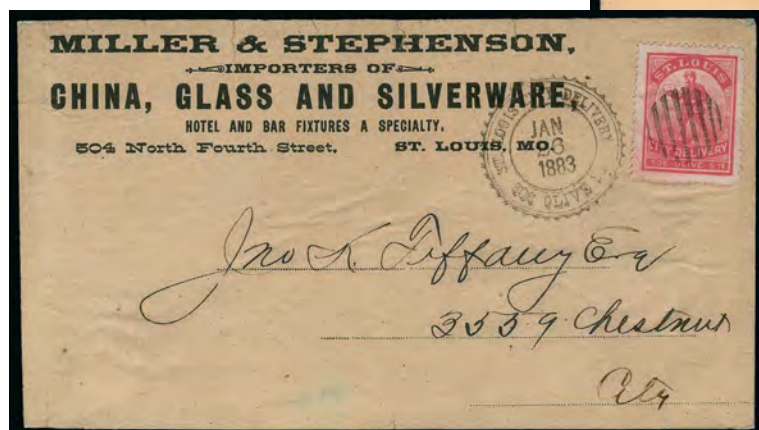 MILLER & STEPHENSON,
IMPORTERS OF
CHINA, GLASS AND SILVERWARE,
HOTEL AND BAR FIXTURES A SPECIALTY.
504 North Fourth Street, ST. LOUIS, MO.
ST. LOUIS CITY DELIVERY
JAN
26
1883
308 OLIVE ST.
ST. LOUIS
CITY DELIVERY
Jno K. Tiffany Esq
3559 Chestnut
City